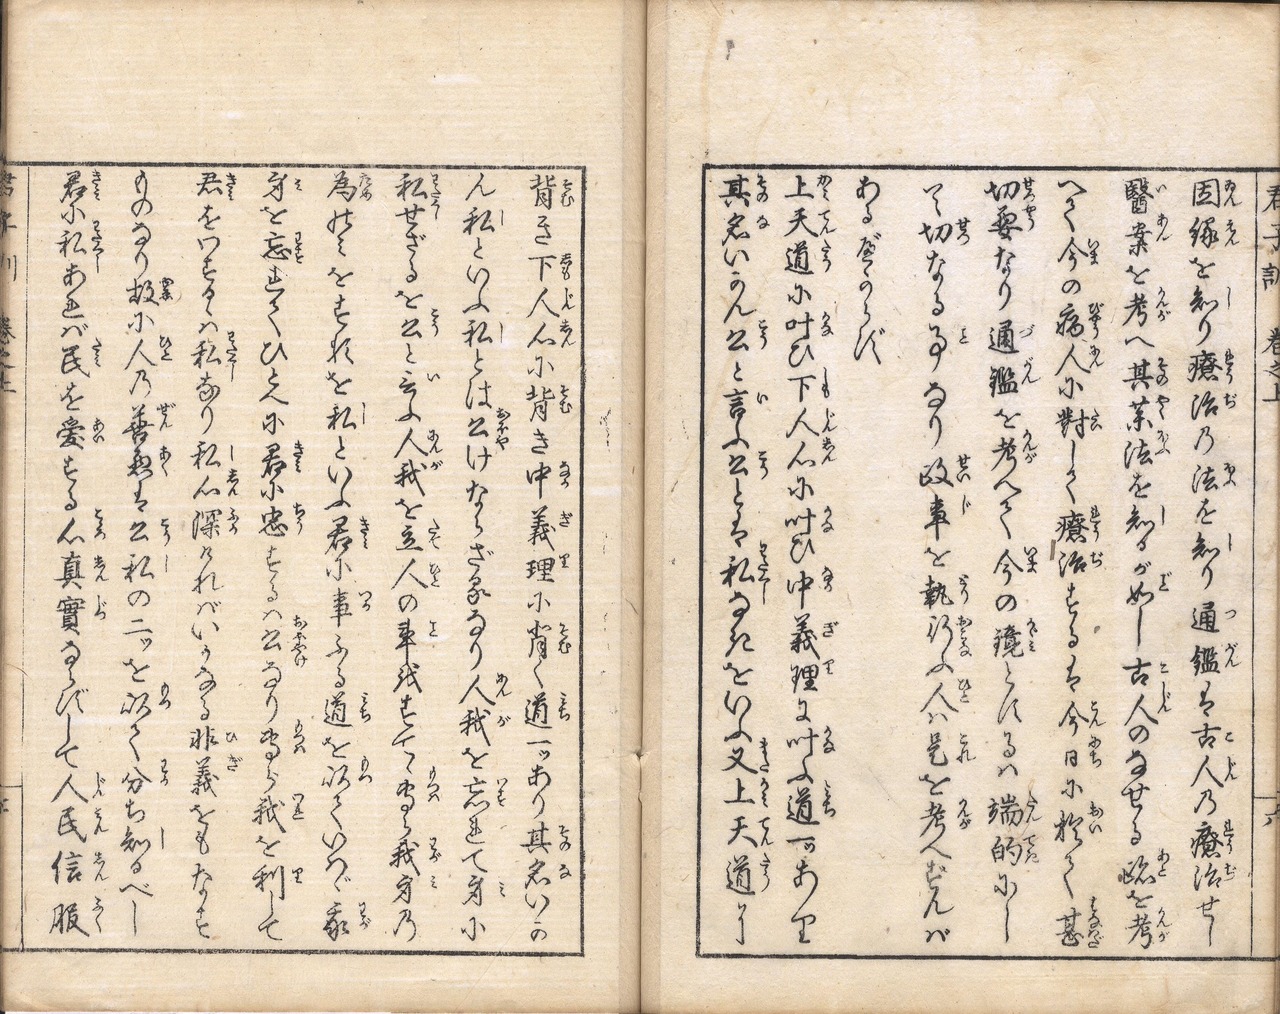 君子訓 巻之上 十六
因縁を知り療治乃法を知り通鑑は古人乃療治せし
醫案を考へ其薬法を知るが如し古人のなせる跡を考
へて今の病人に對して療治するは今日に於て甚
切要なり通鑑を考へて今の鏡とするハ端的にし
て切なる事なり政事を執行ふ人ハ是を考へずんバ
あるべからず
上天道に叶ひ下人心に叶ひ中義理に叶ふ道一ツあり
其名いかん公と言ふ公とは私なきをいふ又上天道に
背き下人心に背き中義理に背く道一ツあり其名いか
ん私といふ私とは公けならざるなり人我を忘れて身に
私せざるを公と云ふ人我を立人の事をすてゝ専ら我身乃
為のミをするを私といふ君に事ふる道を以ていハゞ我
身を忘れてひとへに君に忠するハ公なり専ら我を利して
君をわするゝハ私なり私心深けれバいかなる非義をもなす
ものなり故に人乃善悪は公私の二ツを以て分ち知るべし
君に私あれバ民を愛する心真實ならずして人民信服
君子訓 巻之上